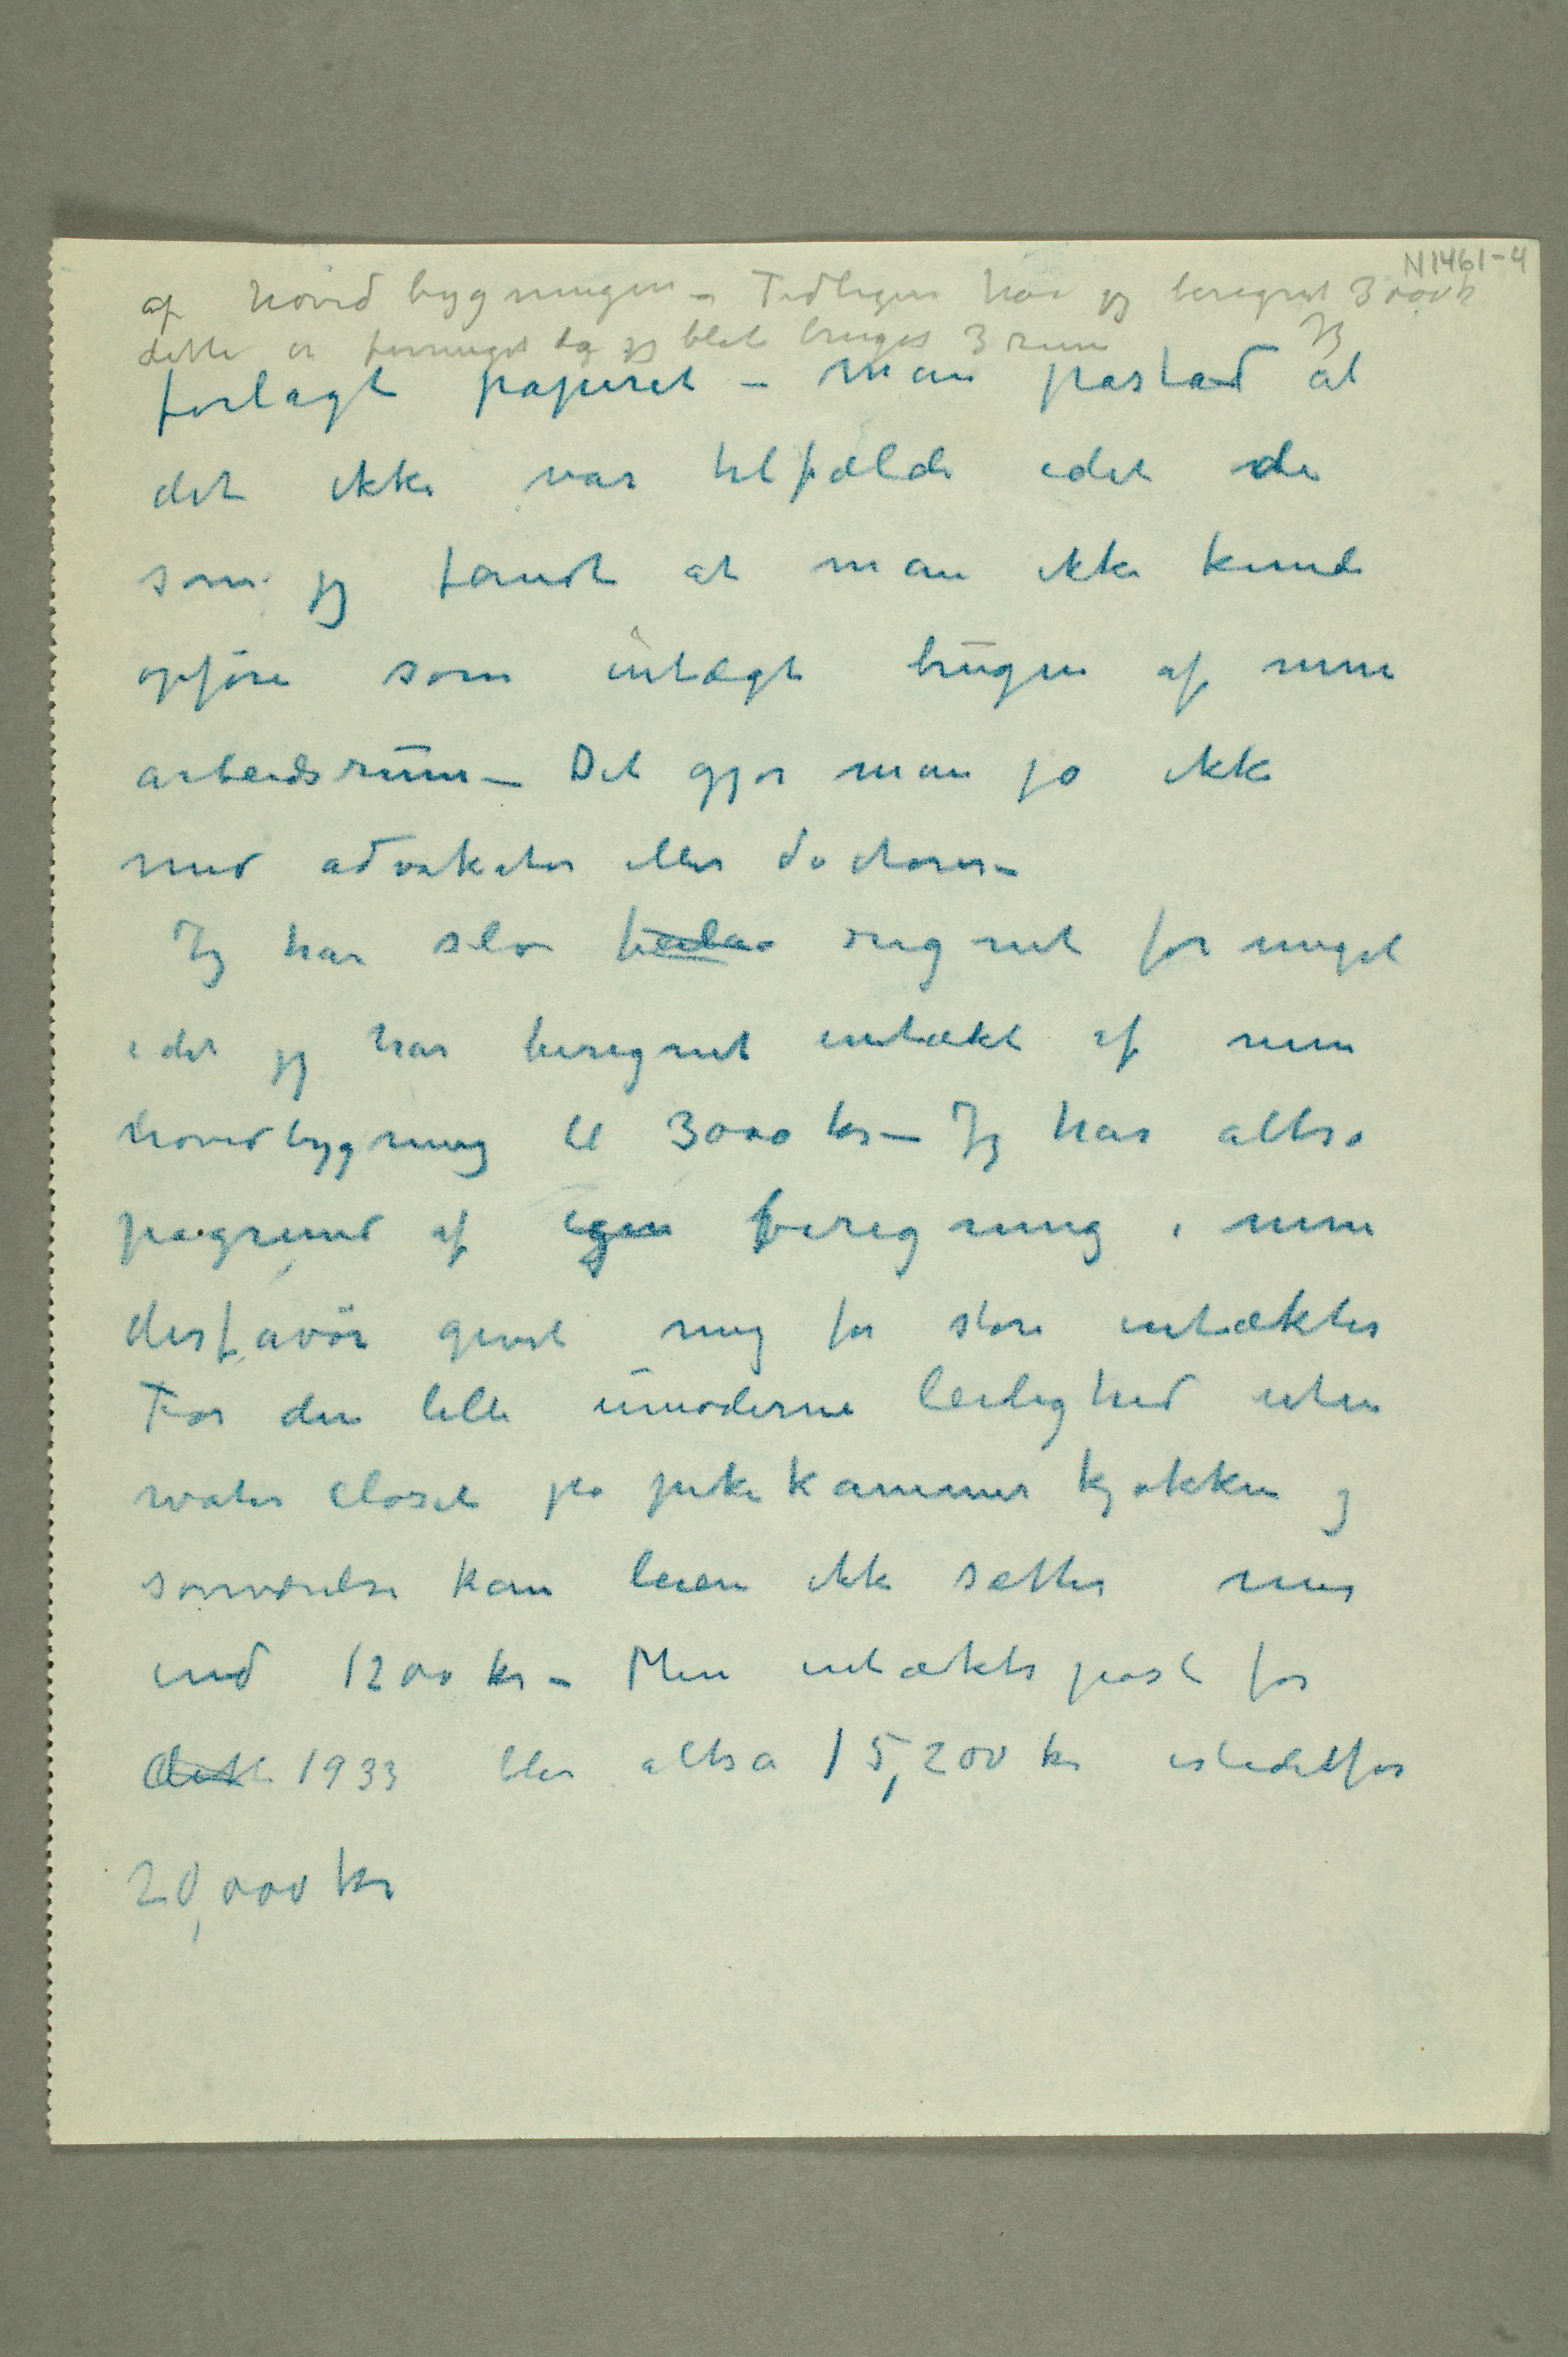 N1461-4
af hovedbygningen – Tidligere har jeg beregnet 3000 kr
dette er formeget da jeg blot bruger 3 rum Jeg
forlagt papiret – Man påstod at
det ikke var tilfælde idet de
som jeg fandt at man ikke kunde
opføre som intægt brugen af mine
arbeidsrum – Det gjør man jo ikke
med advokater eller doctorer –
Jeg har selv regnet for meget
idet jeg har beregnet intækt af min
hovedbygning til 3000 kr – Jeg har altså
pågrund af egen beregning i min
disfavör givet mig for store intækter
For den lille umoderne leilighed uten
water closet på pikekammer kjøkken og
soveværelse kan leien ikke sættes mer
end 1200 kr – Min intækts post for
dette 1933 blir altså 15,200 kr istedetfor
20,000 kr